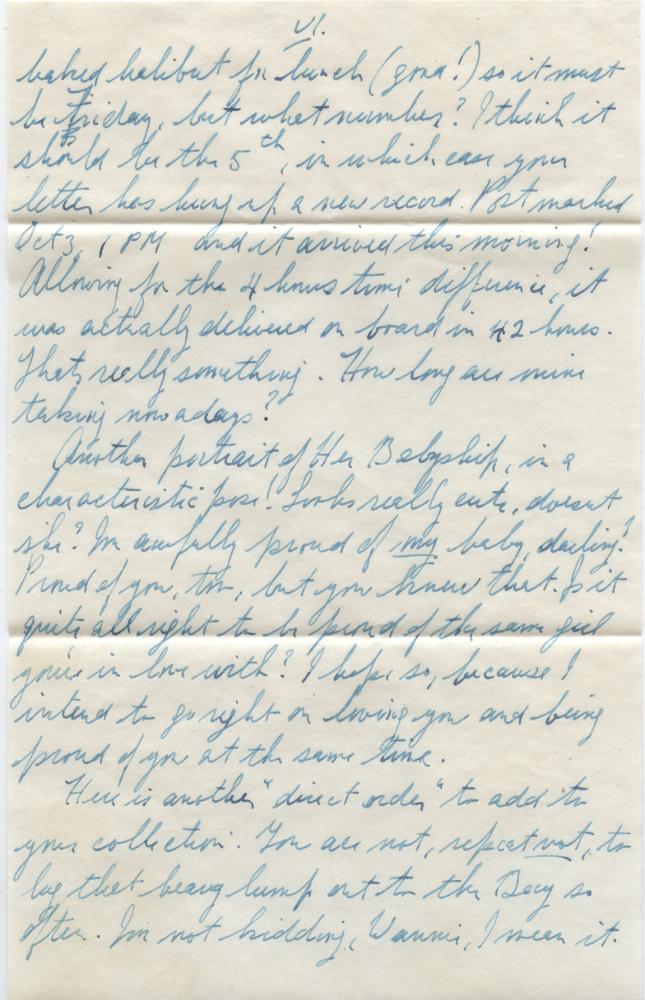 VI.
baked halibut for lunch (good!) so it must
be Friday, but what number? I think it
should be the 5th, in which case your
letter has hung up a new record. Postmarked
Oct 3, 1 PM and it arrived this morning!
Allowing for the 4 hours time difference, it
was actually delivered on board in 42 hours.
Thats really something. How long are mine
taking nowadays?
Another portrait of Her Babyship, in a
characteristic pose! Looks really cute, doesnt
she? Im awfully proud of my baby, darling!
Proud of you, too, but you knew that. Is it
quite all right to be proud of the same girl
you're in love with? I hope so, because I
intend to go right on loving you and being
proud of you at the same time.
Here is another "direct order" to add to
your collection. You are not, repeat not, to
lug that heavy lump out to the Bay so
often. Im not kidding, I mean it.